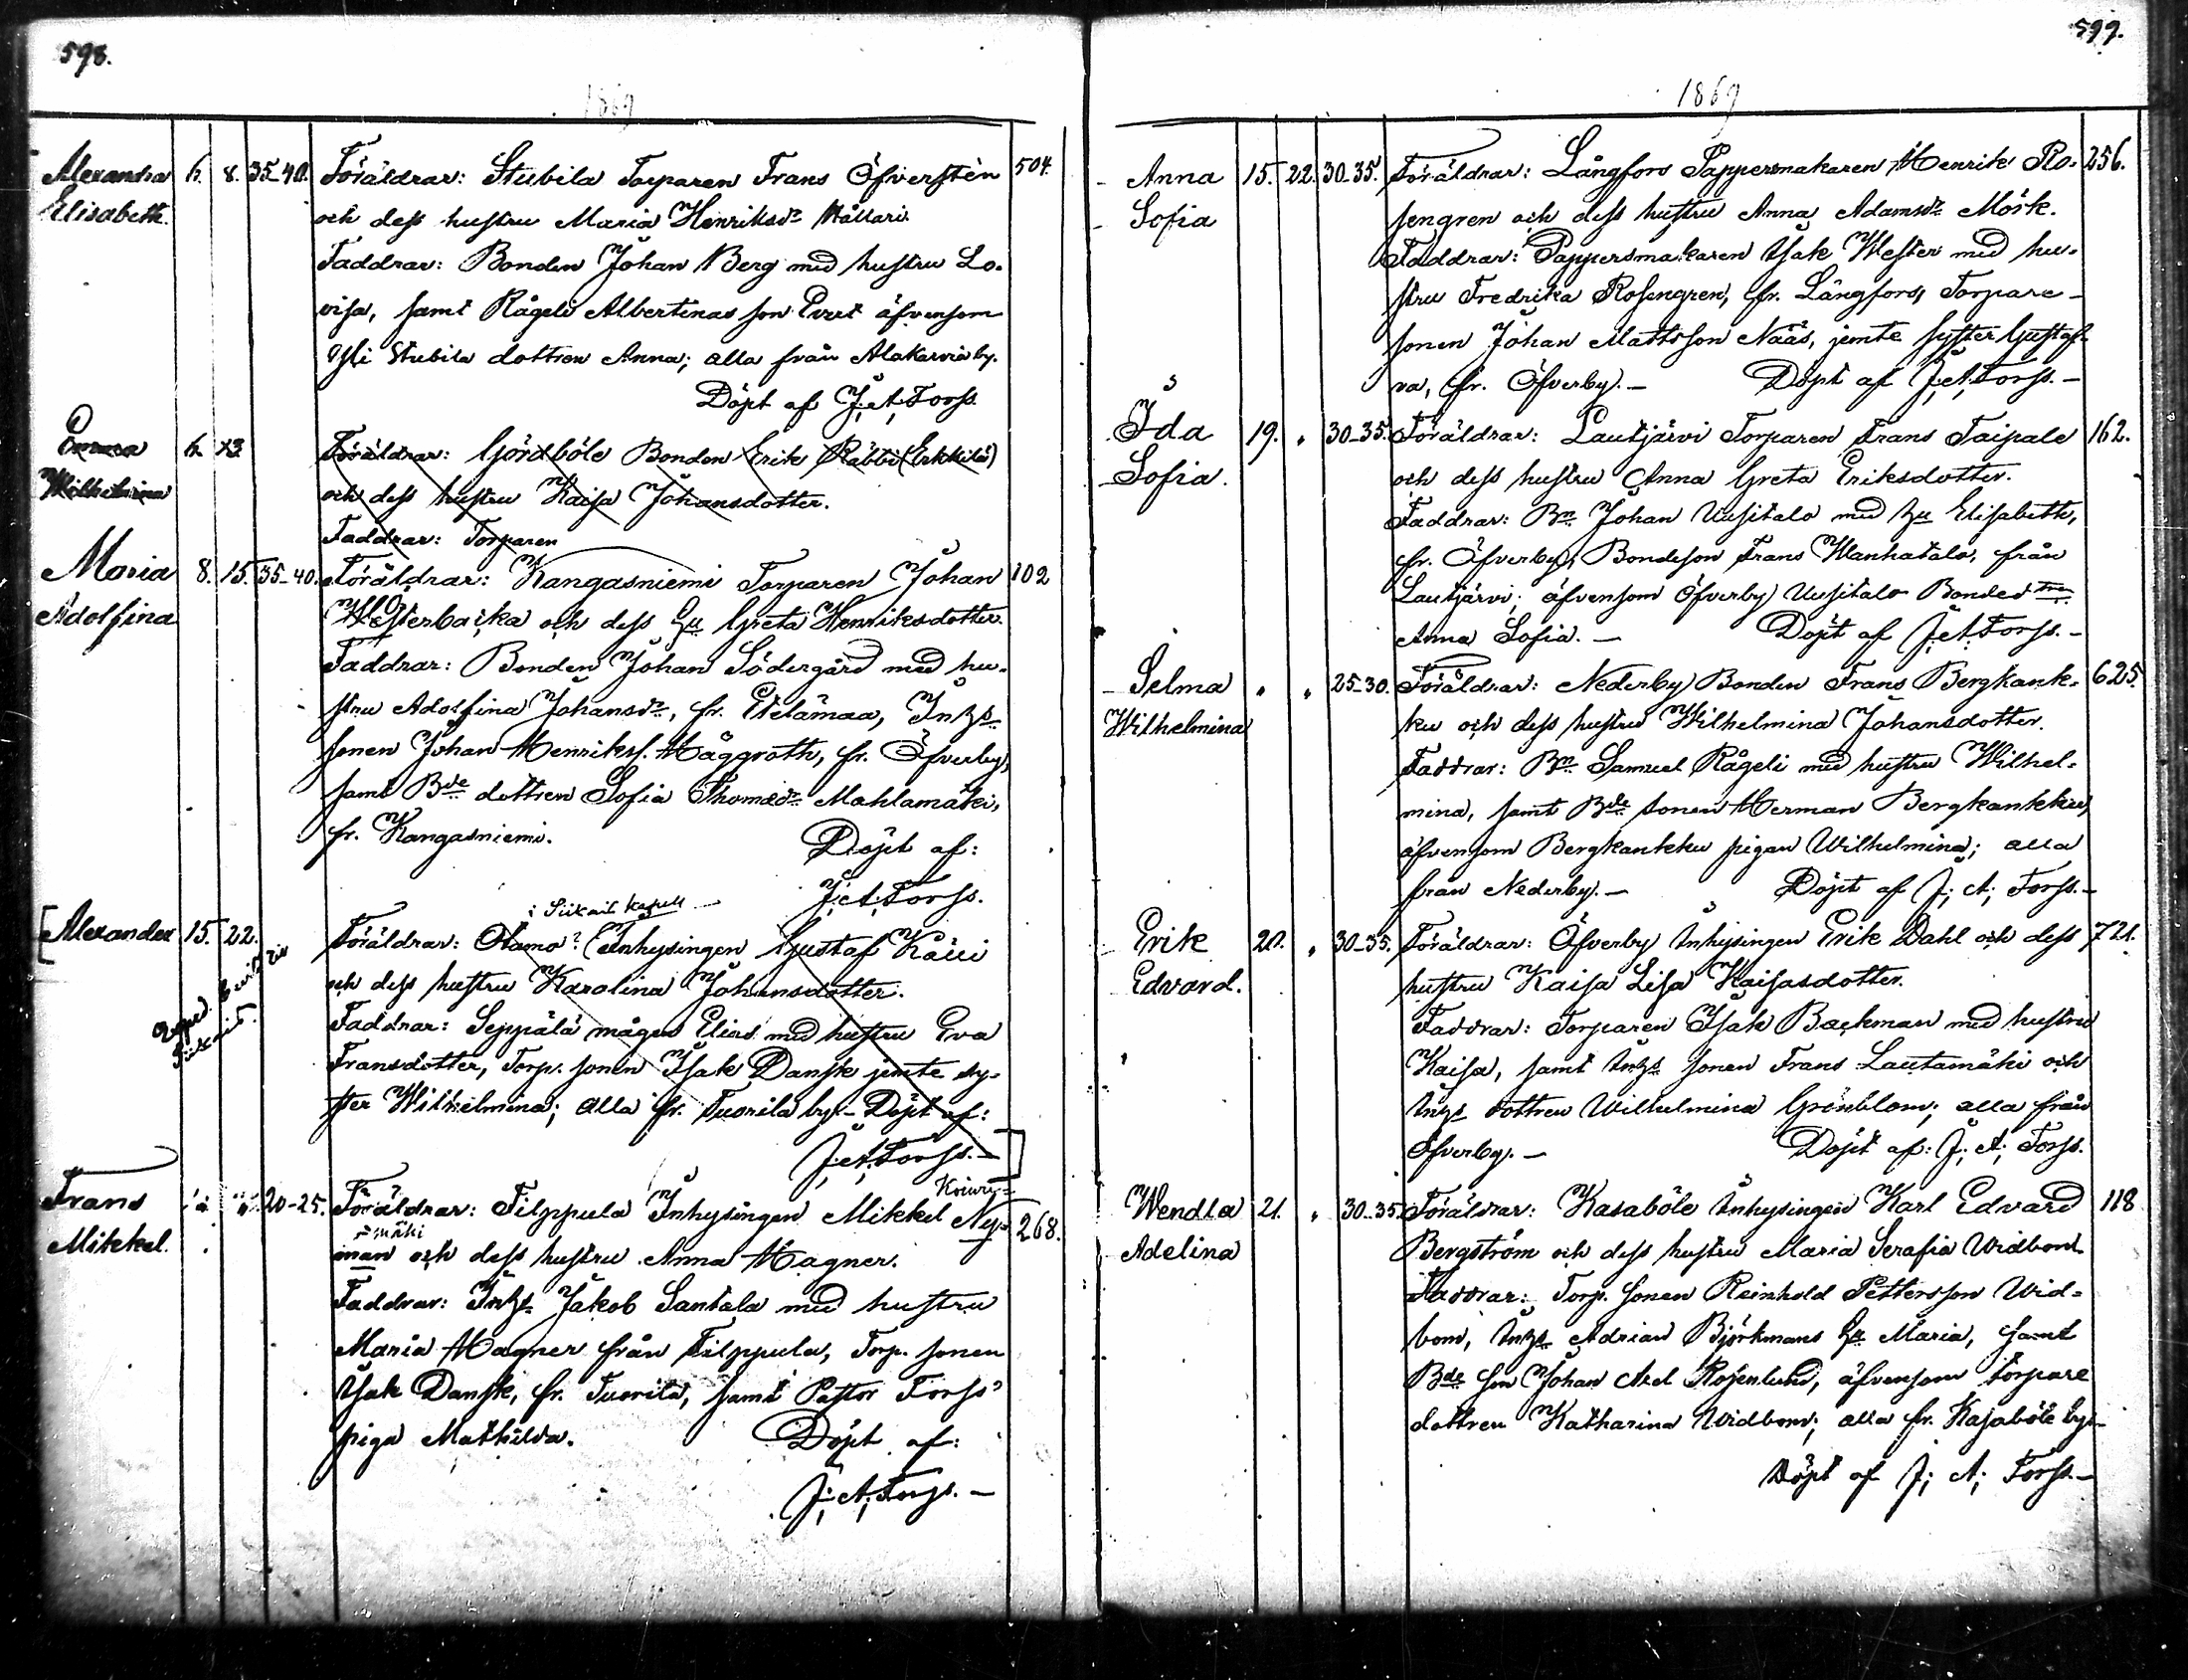 598.
1869
Alexandra 6. 8. 35-40. Föräldrar: Stubila Torparen Frans Öfverstén 504.
Elisabeth. och dess hustru Maria Henriksdr Hållari.
Faddrar: Bonden Johan Berg med hustru Lo-
visa, samt Rågeli Albertinas son Evert äfvensom
Yli Stubila dottren Anna; alla från Alakarvia by.
Döpt af J. A. Forss.
Emma 6. 13 Föräldrar: Gördböle Bonden Erik Rabbi (Erkkilä)
Wilhelmina och dess hustru Kaisa Johansdotter.
Faddrar: Torparen
Maria 8. 15. 35-40. Föräldrar: Kangasniemi Torparen Johan 102
Adolfina Westerbacka och dess Hu Greta Henriksdotter.
Faddrar: Bonden Johan Södergård med hu-
stru Adolfina Johansdr, fr. Etelämaa, Inhs
sonen Johan Henrikss. Häggroth, fr. Öfverby,
samt Bde dottren Sofia Thomædr Mahlamäki,
fr. Kangasniemi. Döpt af:
J. A. Forss.
i Siikais Kapell
[Alexander 15. 22. Föräldrar: Otamo? (Inhysingen Gustaf
och dess hustru Karolina Johansdotter.
Faddrar: Seppälä mågen Elias med hustru Eva
Fransdotter, Torp. sonen Isak Dansk jemte sy-
ster Wilhelmina; alla fr. Tuorila by. - Döpt af:
J. A. Forss. -]
Exped. bevis till
Siikais.
Frans " " 20-25. Föräldrar: Filppula Inhysingen Mikkel Ny- 268.
Koivu=
=mäki
Mikkel. man och dess hustru Anna Hagner.
Faddrar: Inhs Jakob Santala med hustru
Maria Hagner från Filppula, Torp. sonen
Isak Dansk, fr. Tuorila, samt Pastor Forss'
piga Mathilda. Döpt af:
J. A. Forss. -
599.
1869
Anna 15. 22. 30-35. Föräldrar: Långfors Pappersmakaren Henrik Ro- 256.
Sofia sengren och dess hustru Anna Adamsdr Mörk.
Faddrar: Pappersmakaren Isak Wester med hu-
stru Fredrika Rosengren, fr. Långfors, Torpare-
sonen Johan Mattsson Nääs, jemte syster Gustaf-
va, fr. Öfverby. - Döpt af J. A. Forss. -
Ida 19. " 30-35. Föräldrar: Lautjärvi Torparen Frans Taipale 162.
Sofia. och dess hustru Anna Greta Eriksdotter.
Faddrar: Bn Johan Uusitalo med Hu Elisabeth,
fr. Öfverby, Bondeson Frans Wanhatalo, från
Lautjärvi; äfvensom Öfverby Uusitalo Bondedtren
Anna Sofia. - Döpt af J. A. Forss. -
Selma " " 25-30. Föräldrar: Nederby Bonden Frans Bergkank- 625.
Wilhelmina ku och dess hustru Wilhelmina Johansdotter.
Faddrar: Bn Samuel Rågeli med hustru Wilhel-
mina, samt Bde sonen Herman Bergkankku,
äfvensom Bergkankku pigan Wilhelmina; alla
från Nederby. - Döpt af J. A. Forss. -
Erik 20. " 30-35. Föräldrar: Öfverby Inhysingen Erik Dahl och dess 721.
Edvard. hustru Kaisa Lisa Kaisasdotter.
Faddrar: Torparen Isak Backman med hustru
Kaisa, samt Inhs sonen Frans Lautamäki och
Inhs dottren Wilhelmina Grönblom; alla från
Öfverby. - Döpt af: J. A. Forss.
Wendla 21. " 30-35. Föräldrar: Kasaböle Inhysingen Karl Edvard 118
Adelina Bergström och dess hustru Maria Serafia Widbom.
Faddrar: Torp. sonen Reinhold Pettersson Wid-
bom, Inhs Adrian Björkmans Hu Maria, samt
Bde son Johan Axel Rosenlund, äfvensom torpare
dottren Katharina Widbom; alla fr. Kasaböle by. -
Döpt af J. A. Forss. -